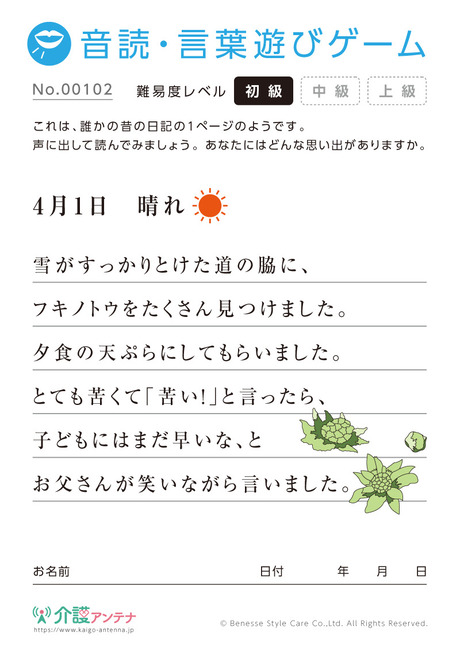 音読・言葉遊びゲーム
No.00102 難易度レベル 初級 中級 上級
これは、誰かの昔の日記の1ページのようです。
声に出して読んでみましょう。あなたにはどんな思い出がありますか。
4月1日 晴れ
雪がすっかりとけた道の脇に、
フキノトウをたくさん見つけました。
夕食の天ぷらにしてもらいました。
とても苦くて「苦い!」と言ったら、
子どもにはまだ早いな、と
お父さんが笑いながら言いました。
お名前 日付 年 月 日
介護アンテナ
https://www.kaigo-antenna.jp
© Benesse Style Care Co.,Ltd. All Rights Reserved.